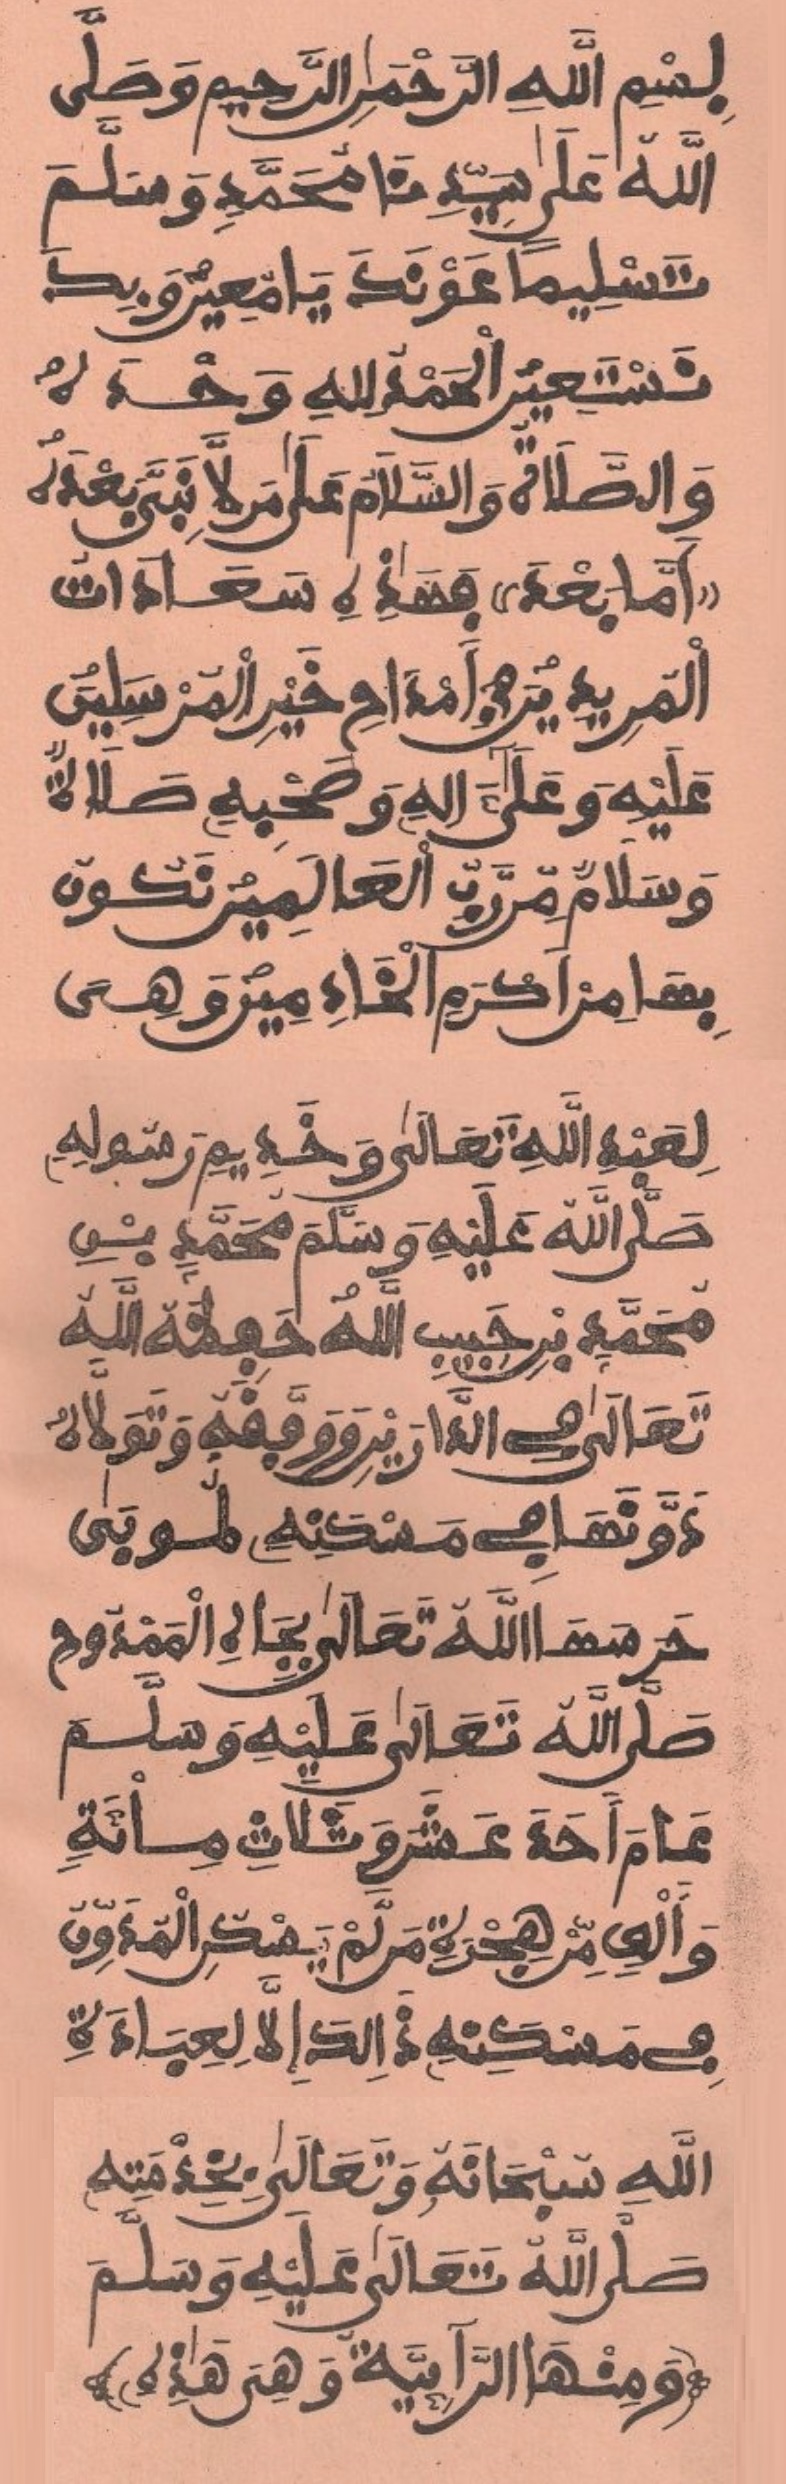 بِسْمِ اللَّهِ الرَّحْمَٰنِ الرَّحِيمِ وَصَلَّى
اللَّهُ عَلَىٰ سَيِّدِنَا مُحَمَّدٍ وَسَلَّمَ
تَسْلِيمًا عَوْنَكَ يَا مُعِينُ وَبِكَ
نَسْتَعِينُ الْحَمْدُ لِلهِ وَحْدَهُ
وَالصَّلَاةُ وَالسَّلَامُ عَلَىٰ مَن لَّا نَبِيَّ بَعْدَهُ
«أَمَّا بَعْدَ» فَهَٰذِهِ سَعَادَاتُ
الْمُرِيدِينَ فِي أَمْدَاحِ خَيْرِ الْمُرْسَلِينَ
عَلَيْهِ وَعَلَىٰ ءَالِهِ وَصَحْبِهِ صَلَاةٌ
وَسَلَامٌ مِّن رَّبِّ الْعَالَمِينَ نَكُونُ
بِهَا مِنْ أَكْرَمِ الْخَادِمِينَ وَهِىَ
لِعَبْدِ اللَّهِ تَعَالَىٰ وَخَدِيمِ رَسُولِهِ
صَلَّى اللَّهُ عَلَيْهِ وَسَلَّمَ مُحَمَّدِ بْنِ
مُحَمَّدِ بْنِ حَبِيبِ اللَّهُ حَفِظَهُ اللَّهُ
تَعَالَىٰ فِي الدَّارَيْنِ وَوَفَّقَهُ وَتَوَلَّاهُ
دَوَّنَهَا فِي مَسْكَنِهِ طُوبَىٰ
حَرَسَهَا اللَّهُ تَعَالَىٰ بِجَاهِ الْمَمْدُوحِ
صَلَّى اللَّهُ تَعَالَىٰ عَلَيْهِ وَسَلَّمَ
عَامَ أَحَدَ عَشَرَ وَثَلَاثِ مِائَةِ
وَأَلْفٍ مِّنْ هِجْرَةِ مَن لَّمْ يَسْكُنِ الْمُدَوِّنُ
فِي مَسْكَنِهِ ذَالِكَ إِلَّا لِعِبَادَةِ
اللَّهِ سُبْحَانَهُ وَتَعَالَىٰ بِخِدْمَتِهِ
صَلَّى اللَّهُ تَعَالَىٰ عَلَيْهِ وَسَلَّمَ
﴿وَمِنْهَا الرَّآئِيَّةُ وَهِىَ هَٰذِهِ﴾